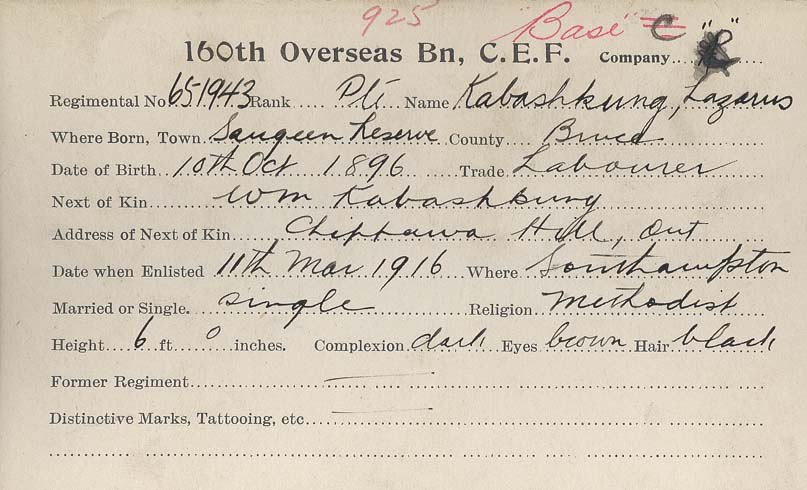 925 "Base" C " "
160th Overseas Bn, C.E.F. Company....
Regimental No 651943 Rank .... Pte ... Name Kabashkung, Lazarus
Where Born, Town. Saugeen Reserve County ... Bruce
Date of Birth. 10th Oct 1896 Trade Labourer
Next of Kin Wm Kabashkung
Address of Next of Kin.... Chippawa Hill, Ont
Date when Enlisted 11th Mar. 1916 Where Southampton
Married or Single. single Religion Methodist
Height 6 ft 0 inches. Complexion dark Eyes brown Hair black
Former Regiment
Distinctive Marks, Tattooing, etc